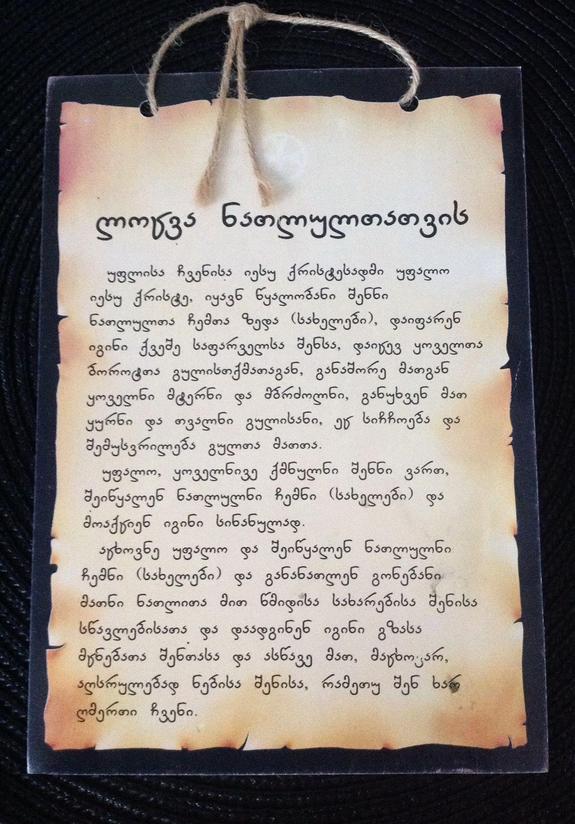 ლოცვა ნათლულთათვის
უფლისა ჩვენისა იესუ ქრისტესადმი უფალო
იესუ ქრისტე, იყავნ წყალობანი შენნი
ნათლულთა ჩემთა ზედა (სახელები), დაიფარენ
იგინი ქვეშე საფარველსა შენსა, დაიცევ ყოველთა
ბოროტთა გულისთქმათაგან, განაშორე მათგან
ყოველნი მტერნი და მბრძოლნი, განუხვენ მათ
ყურნი და თვალნი გულისანი, ეც სიჩჩოება და
შემუსვრილება გულთა მათთა.
უფალო, ყოველნივე ქმნულნი შენნი ვართ,
შეიწყალენ ნათლულნი ჩემნი (სახელები) და
მოაქციენ იგინი სინანულად.
აცხოვნე უფალო და შეიწყალენ ნათლულნი
ჩემნი (სახელები) და განანათლენ გონებანი
მათნი ნათლითა მით წმიდისა სახარებისა შენისა
სწავლებისათა და დაადგინენ იგინი გზასა
მცნებათა შენთასა და ასწავე მათ, მაცხოვარ,
აღსრულებად ნებისა შენისა, რამეთუ შენ ხარ
ღმერთი ჩვენი.